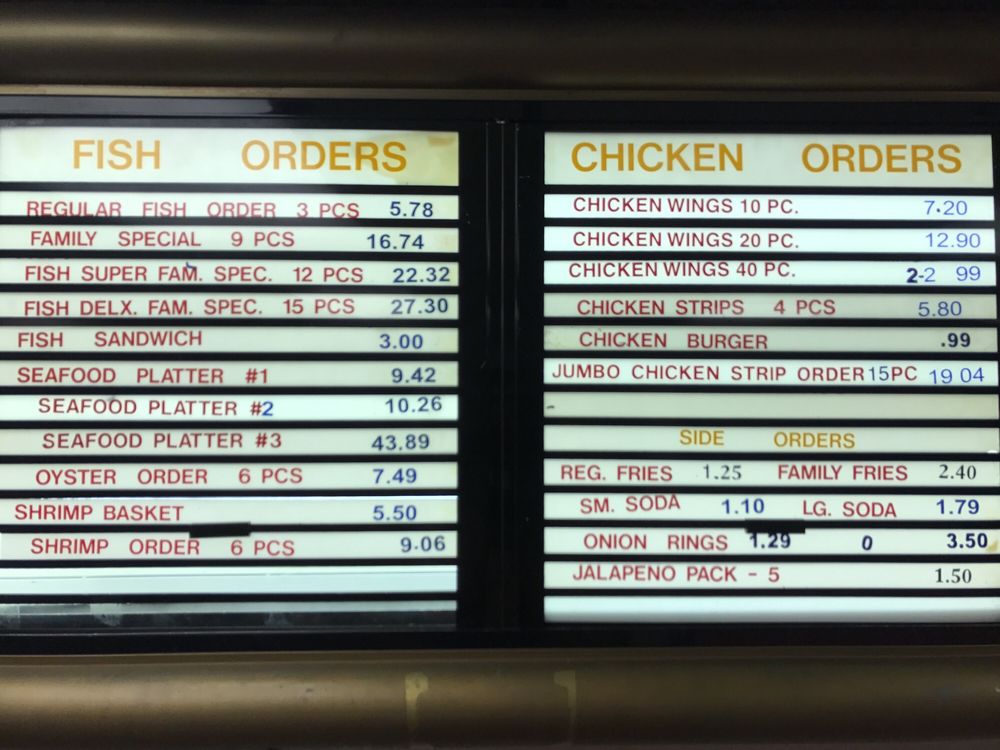 FISH ORDERS
REGULAR FISH ORDER 3 PCS 5.78
FAMILY SPECIAL 9 PCS 16.74
FISH SUPER FAM. SPEC. 12 PCS 22.32
FISH DELX. FAM. SPEC. 15 PCS 27.30
FISH SANDWICH 3.00
SEAFOOD PLATTER #1 9.42
SEAFOOD PLATTER #2 10.26
SEAFOOD PLATTER #3 43.89
OYSTER ORDER 6 PCS 7.49
SHRIMP BASKET 5.50
SHRIMP ORDER 6 PCS 9.06
CHICKEN ORDERS
CHICKEN WINGS 10 PC. 7.20
CHICKEN WINGS 20 PC. 12.90
CHICKEN WINGS 40 PC. 2-2 99
CHICKEN STRIPS 4 PCS 5.80
CHICKEN BURGER .99
JUMBO CHICKEN STRIP ORDER 15PC 19 04
SIDE ORDERS
REG. FRIES 1.25 FAMILY FRIES 2.40
SM. SODA 1.10 LG. SODA 1.79
ONION RINGS 1.29 0 3.50
JALAPENO PACK - 5 1.50